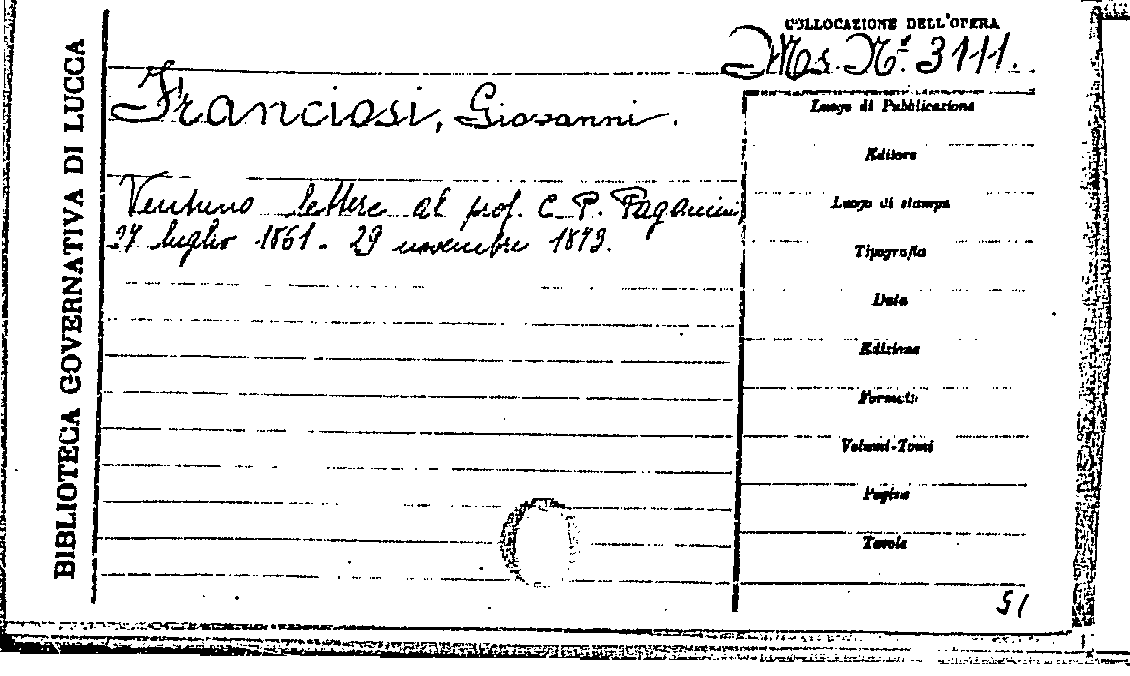 BIBLIOTECA GOVERNATIVA DI LUCCA
COLLOCAZIONE DELL'OPERA
Ms. N.º 3111.
Franciosi, Giovanni.
Ventuno lettere al prof. C. P. Paganini,
27 luglio 1861 - 29 novembre 1873.
Luogo di Pubblicazione
Editore
Luogo di stampa
Tipografia
Data
Edizione
Formato
Volumi-Tomi
Pagine
Tavole
51